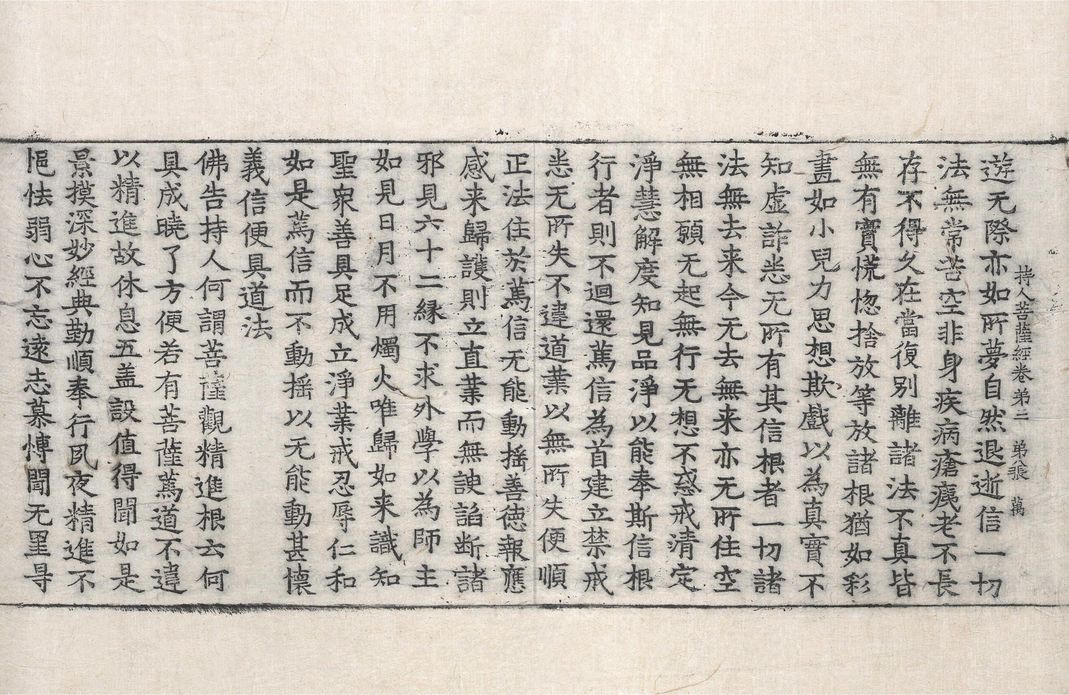 持人菩薩經卷第二 第張 萬
遊无際亦如所夢自然退逝信一切
法無常苦空非身疾病瘡痍老不長
存不得久在當復別離諸法不真皆
無有實慌惚捨放等放諸根猶如彩
畫如小兒力思想欺戲以為真實不
知虛詐悉无所有其信根者一切諸
法無去来今无去無来亦无所住空
無相願无起無行无想不惑戒清定
淨慧解度知見品淨以能奉斯信根
行者則不迴還篤信為首建立禁戒
悉无所失不違道業以無所失便順
正法住於篤信无能動搖善徳報應
感来歸護則立直業而無諛諂断諸
邪見六十二緣不求外學以為師主
如見日月不用燭火唯歸如来識知
聖衆善具足成立淨業戒忍辱仁和
如是篤信而不動搖以无能動甚懷
義信便具道法
佛告持人何謂菩薩觀精進根云何
具成曉了方便若有菩薩篤道不違
以精進故休息五盖設值得聞如是
景摸深妙經典勤順奉行夙夜精進不
怯弱心不忘遠志慕慱聞无里㝵